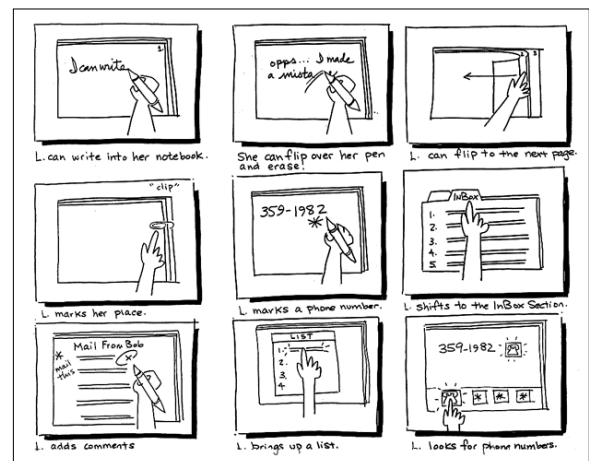 1
I can write
L. can write into her notebook.
opps... I made
a mista
She can flip over her pen
and erase!
2
3
L. can flip to the next page.
"clip"
L. marks her place.
359-1982
*
L. marks a phone number.
InBox
1.
2.
3.
4.
5.
L. shifts to the InBox Section.
Mail From Bob
*
mail
this
L. adds comments
LIST
1.
2.
3.
4
L. brings up a list.
359-1982
* * *
L. looks for phone numbers.